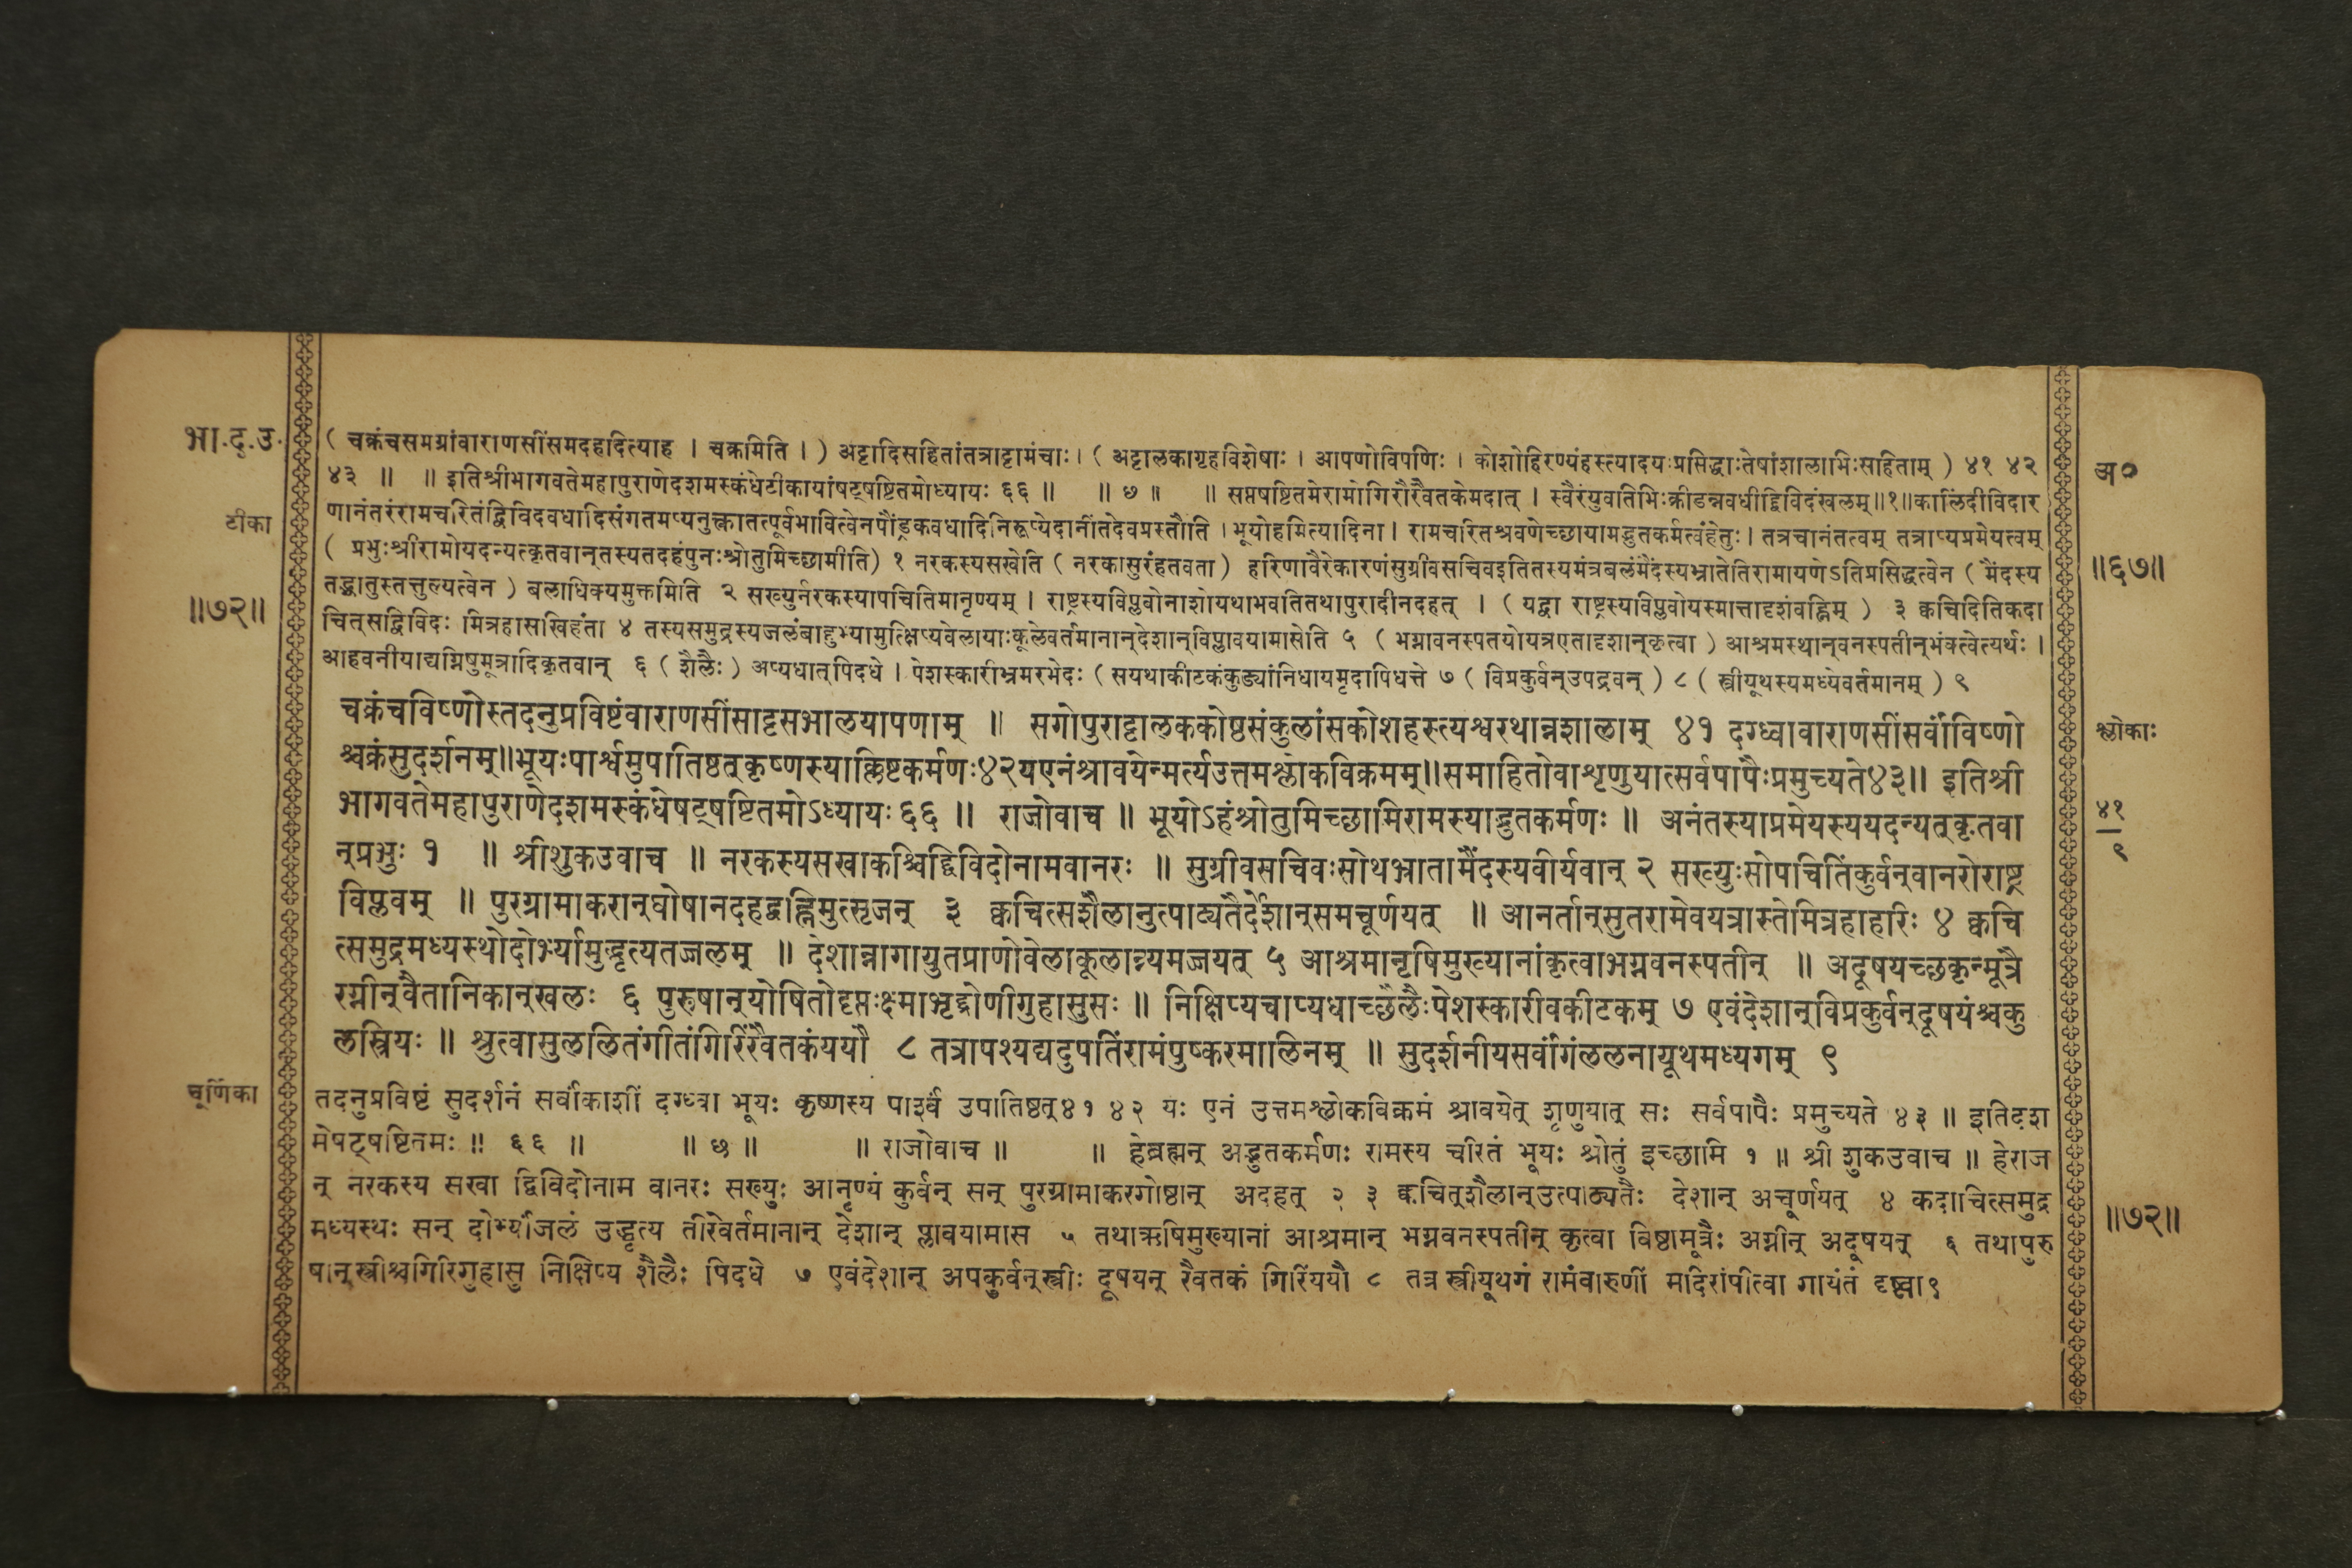 भा.द.उ.
( चक्रंचसमग्रांवाराणसींसमदहदित्याह । चक्रमिति । ) अट्टादिसहितांतत्राट्टामंचाः। ( अट्टालकागृहविशेषाः । आपणोविपणिः । कोशोहिरण्यंहस्त्यादयःप्रसिद्धाःतेषांशालाभिःसहिताम् ) ४१ ४२
अ०
४३ ॥ ॥ इतिश्रीभागवतेमहापुराणेदशमस्कंधेटीकायांषट्षष्टितमोध्यायः ६६ ॥ ॥ छ ॥ ॥ सप्तषष्टितमेरामोगिरौरैवैतकेमदात् । स्वैरंयुवतिभिःक्रीडन्नवधीद्द्विविदंखलम्॥१॥कालिंदीविदार
टीका
णानंतरंरामचरितंद्विविदवधादिसंगतमप्यनुक्त्वातत्पूर्वभावित्वेनपौंड्रकवधादिनिरूप्येदानींतदेवप्रस्तौति । भूयोहमित्यादिना । रामचरितश्रवणेच्छायामद्भुतकर्मत्वंहेतुः। तत्रचानंतत्वम् तत्राप्यप्रमेयत्वम्
( प्रभुःश्रीरामोयदन्यत्कृतवान्तस्यतदहंपुनःश्रोतुमिच्छामीति) १ नरकस्यसखेति ( नरकासुरंहतवता ) हरिणावैरेकारणंसुग्रीवसचिवइतितस्यमंत्रबलंमैंदस्यभ्रातेतिरामायणेऽतिप्रसिद्धत्वेन ( मैंदस्य
॥६७॥
तद्भ्रातुस्तत्तुल्यत्वेन ) बलाधिक्यमुक्तमिति २ सख्युर्नरकस्यापचितिमानृण्यम् । राष्ट्रस्यविप्लवोनाशोयथाभवतितथापुरादीनदहत् । ( यद्वा राष्ट्रस्यविप्लवोयस्मात्तादृशंवह्निम् ) ३ क्वचिदितिकदा
॥७२॥
चित्सद्विविदः मित्रहासखिहंता ४ तस्यसमुद्रस्यजलंबाहुभ्यामुत्क्षिप्यवेलायाःकूलेवर्तमानान्देशान्विप्लावयामासेति ५ ( भग्नावनस्पतयोयत्रएतादृशान्कृत्वा ) आश्रमस्थान्वनस्पतीन्भंक्त्वेत्यर्थः ।
आहवनीयाद्यग्निषुमूत्रादिकृतवान् ६ ( शैलैः ) अप्यधात्पिदधे । पेशस्कारीभ्रमरभेदः ( सयथाकीटकंकुड्यांनिधायमृदापिधत्ते ७ ( विप्रकुर्वन्उपद्रवन् ) ८ ( स्त्रीयूथस्यमध्येवर्तमानम् ) ९
चक्रंचविष्णोस्तदनुप्रविष्टंवाराणसींसाट्टसभालयापणाम् ॥ सगोपुराट्टालककोष्ठसंकुलांसकोशहस्त्यश्वरथान्नशालाम् ४१ दग्ध्वावाराणसींसर्वांविष्णो
श्लोकाः
श्चक्रंसुदर्शनम्॥भूयःपार्श्वमुपातिष्ठत्कृष्णस्याक्लिष्टकर्मणः४२यएनंश्रावयेन्मर्त्यउत्तमश्लोकविक्रमम्॥समाहितोवाशृणुयात्सर्वपापैःप्रमुच्यते४३॥ इतिश्री
भागवतेमहापुराणेदशमस्कंधेषट्षष्टितमोऽध्यायः ६६ ॥ राजोवाच ॥ भूयोऽहंश्रोतुमिच्छामिरामस्याद्भुतकर्मणः ॥ अनंतस्याप्रमेयस्ययदन्यत्कृतवा
४१
९
न्प्रभुः १ ॥ श्रीशुकउवाच ॥ नरकस्यसखाकश्चिद्द्विविदोनामवानरः ॥ सुग्रीवसचिवःसोथभ्रातामैंदस्यवीर्यवान् २ सख्युःसोपचितिंकुर्वन्वानरोराष्ट्र
विप्लवम् ॥ पुरग्रामाकरान्घोषानदहद्वह्निमुत्सृजन् ३ क्वचित्सशैलानुत्पाट्यतैर्देशान्समचूर्णयत् ॥ आनर्तान्सुतरामेवयत्रास्तेमित्रहाहरिः ४ क्वचि
त्समुद्रमध्यस्थोदोर्भ्यामुद्धृत्यतज्जलम् ॥ देशान्नागायुतप्राणोवेलाकूलान्न्यमज्जयत् ५ आश्रमानृषिमुख्यानांकृत्वाभग्नवनस्पतीन् ॥ अदूषयच्छकृन्मूत्रै
रग्नीन्वैतानिकान्खलः ६ पुरुषान्योषितोदृप्तःक्ष्माभृद्द्रोणीगुहासुसः ॥ निक्षिप्यचाप्यधाच्छैलैःपेशस्कारीवकीटकम् ७ एवंदेशान्विप्रकुर्वन्दूषयंश्चकु
लस्त्रियः ॥ श्रुत्वासुललितंगीतंगिरिंरैवतकंययौ ८ तत्रापश्यद्यदुपतिंरामंपुष्करमालिनम् ॥ सुदर्शनीयसर्वांगंललनायूथमध्यगम् ९
चूर्णिका
तदनुप्रविष्टं सुदर्शनं सर्वांकाशीं दग्ध्वा भूयः कृष्णस्य पार्श्वं उपातिष्ठत्४१ ४२ यः एनं उत्तमश्लोकविक्रमं श्रावयेत् शृणुयात् सः सर्वपापैः प्रमुच्यते ४३ ॥ इतिदश
मेषट्षष्टितमः ॥ ६६ ॥ ॥ छ ॥ ॥ राजोवाच ॥ ॥ हेब्रह्मन् अद्भुतकर्मणः रामस्य चरितं भूयः श्रोतुं इच्छामि १ ॥ श्री शुकउवाच ॥ हेराज
न् नरकस्य सखा द्विविदोनाम वानरः सख्युः आनृण्यं कुर्वन् सन् पुरग्रामाकरगोष्ठान् अदहत् २ ३ क्वचित्शैलान्उत्पाठ्यतैः देशान् अचूर्णयत् ४ कदाचित्समुद्र
मध्यस्थः सन् दोर्भ्यांजलं उद्धृत्य तीरेवर्तमानान् देशान् प्लावयामास ५ तथाऋषिमुख्यानां आश्रमान् भग्नवनस्पतीन् कृत्वा विष्ठामूत्रैः अग्नीन् अदूषयन् ६ तथापुरु
॥७२॥
षान्स्त्रीश्चगिरिगुहासु निक्षिप्य शैलैः पिदधे ७ एवंदेशान् अपकुर्वन्स्त्रीः दूषयन् रैवतकं गिरिंययौ ८ तत्र स्त्रीयूथगं रामंवारुणीं मदिरांपीत्वा गायंतं दृष्ट्वा९